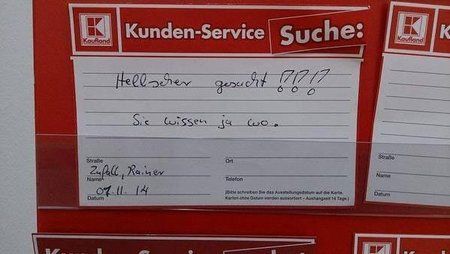 Kaufland
Kunden-Service Suche:
Hellseher gesucht !!!
Sie wissen ja wo.
Straße
Ort
Zufall, Rainer
Name
Telefon
07.11.14
Datum
(Bitte schreiben Sie das Ausstellungsdatum auf die Karte.
Karten ohne Datum werden aussortiert – Aushangzeit 14 Tage.)
Kaufland
Kaufland
Kunden-Service